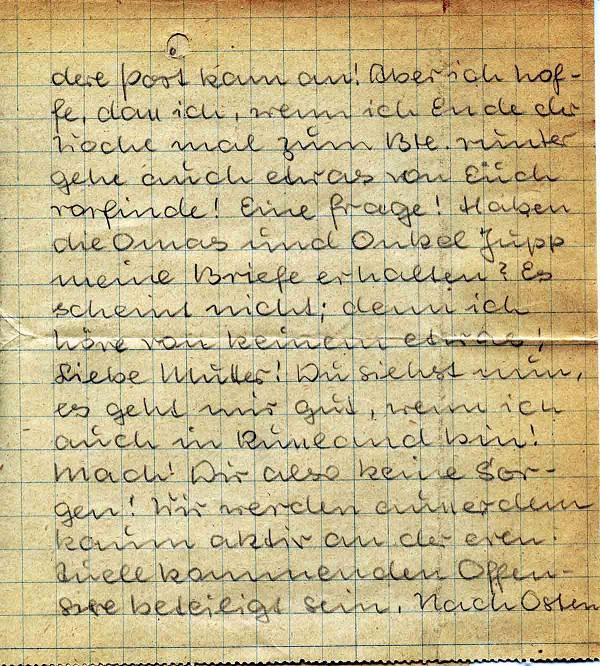 dere Post kam an! Aber ich hof-
fe, daß ich, wenn ich Ende der
Woche mal zum Btl. runter
gehe auch etwas von Euch
vorfinde! Eine Frage! Haben
die Omas und Onkel Jupp
meine Briefe erhalten? Es
scheint nicht; denn ich
höre von keinem etwas!
Liebe Mutter! Du siehst nun,
es geht mir gut, wenn ich
auch in Rußland bin!
Mach' Dir also keine Sor-
gen! Wir werden außerdem
kaum aktiv an der even-
tuell kommenden Offen-
sive beteiligt sein. Nach Osten